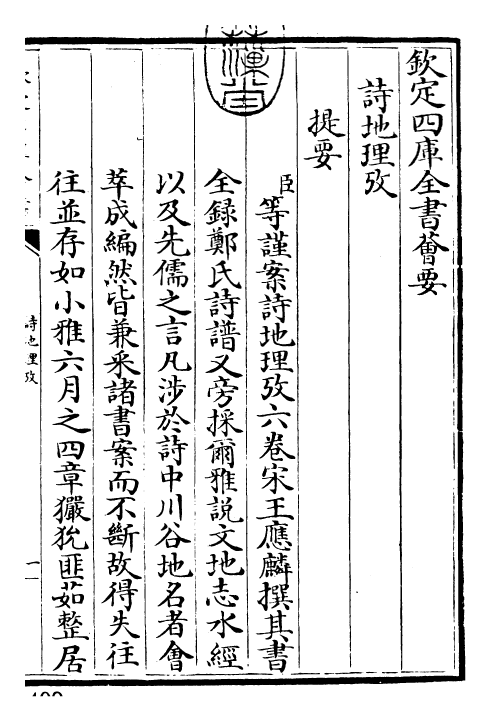 欽定四庫全書薈要
詩地理攷
提要
臣等謹案詩地理攷六卷宋王應麟撰其書
全録鄭氏詩譜又旁採爾雅說文地志水經
以及先儒之言凡涉於詩中川谷地名者會
萃成編然皆兼采諸書案而不斷故得失往
往並存如小雅六月之四章玁狁匪茹整居
詩地理攷
一